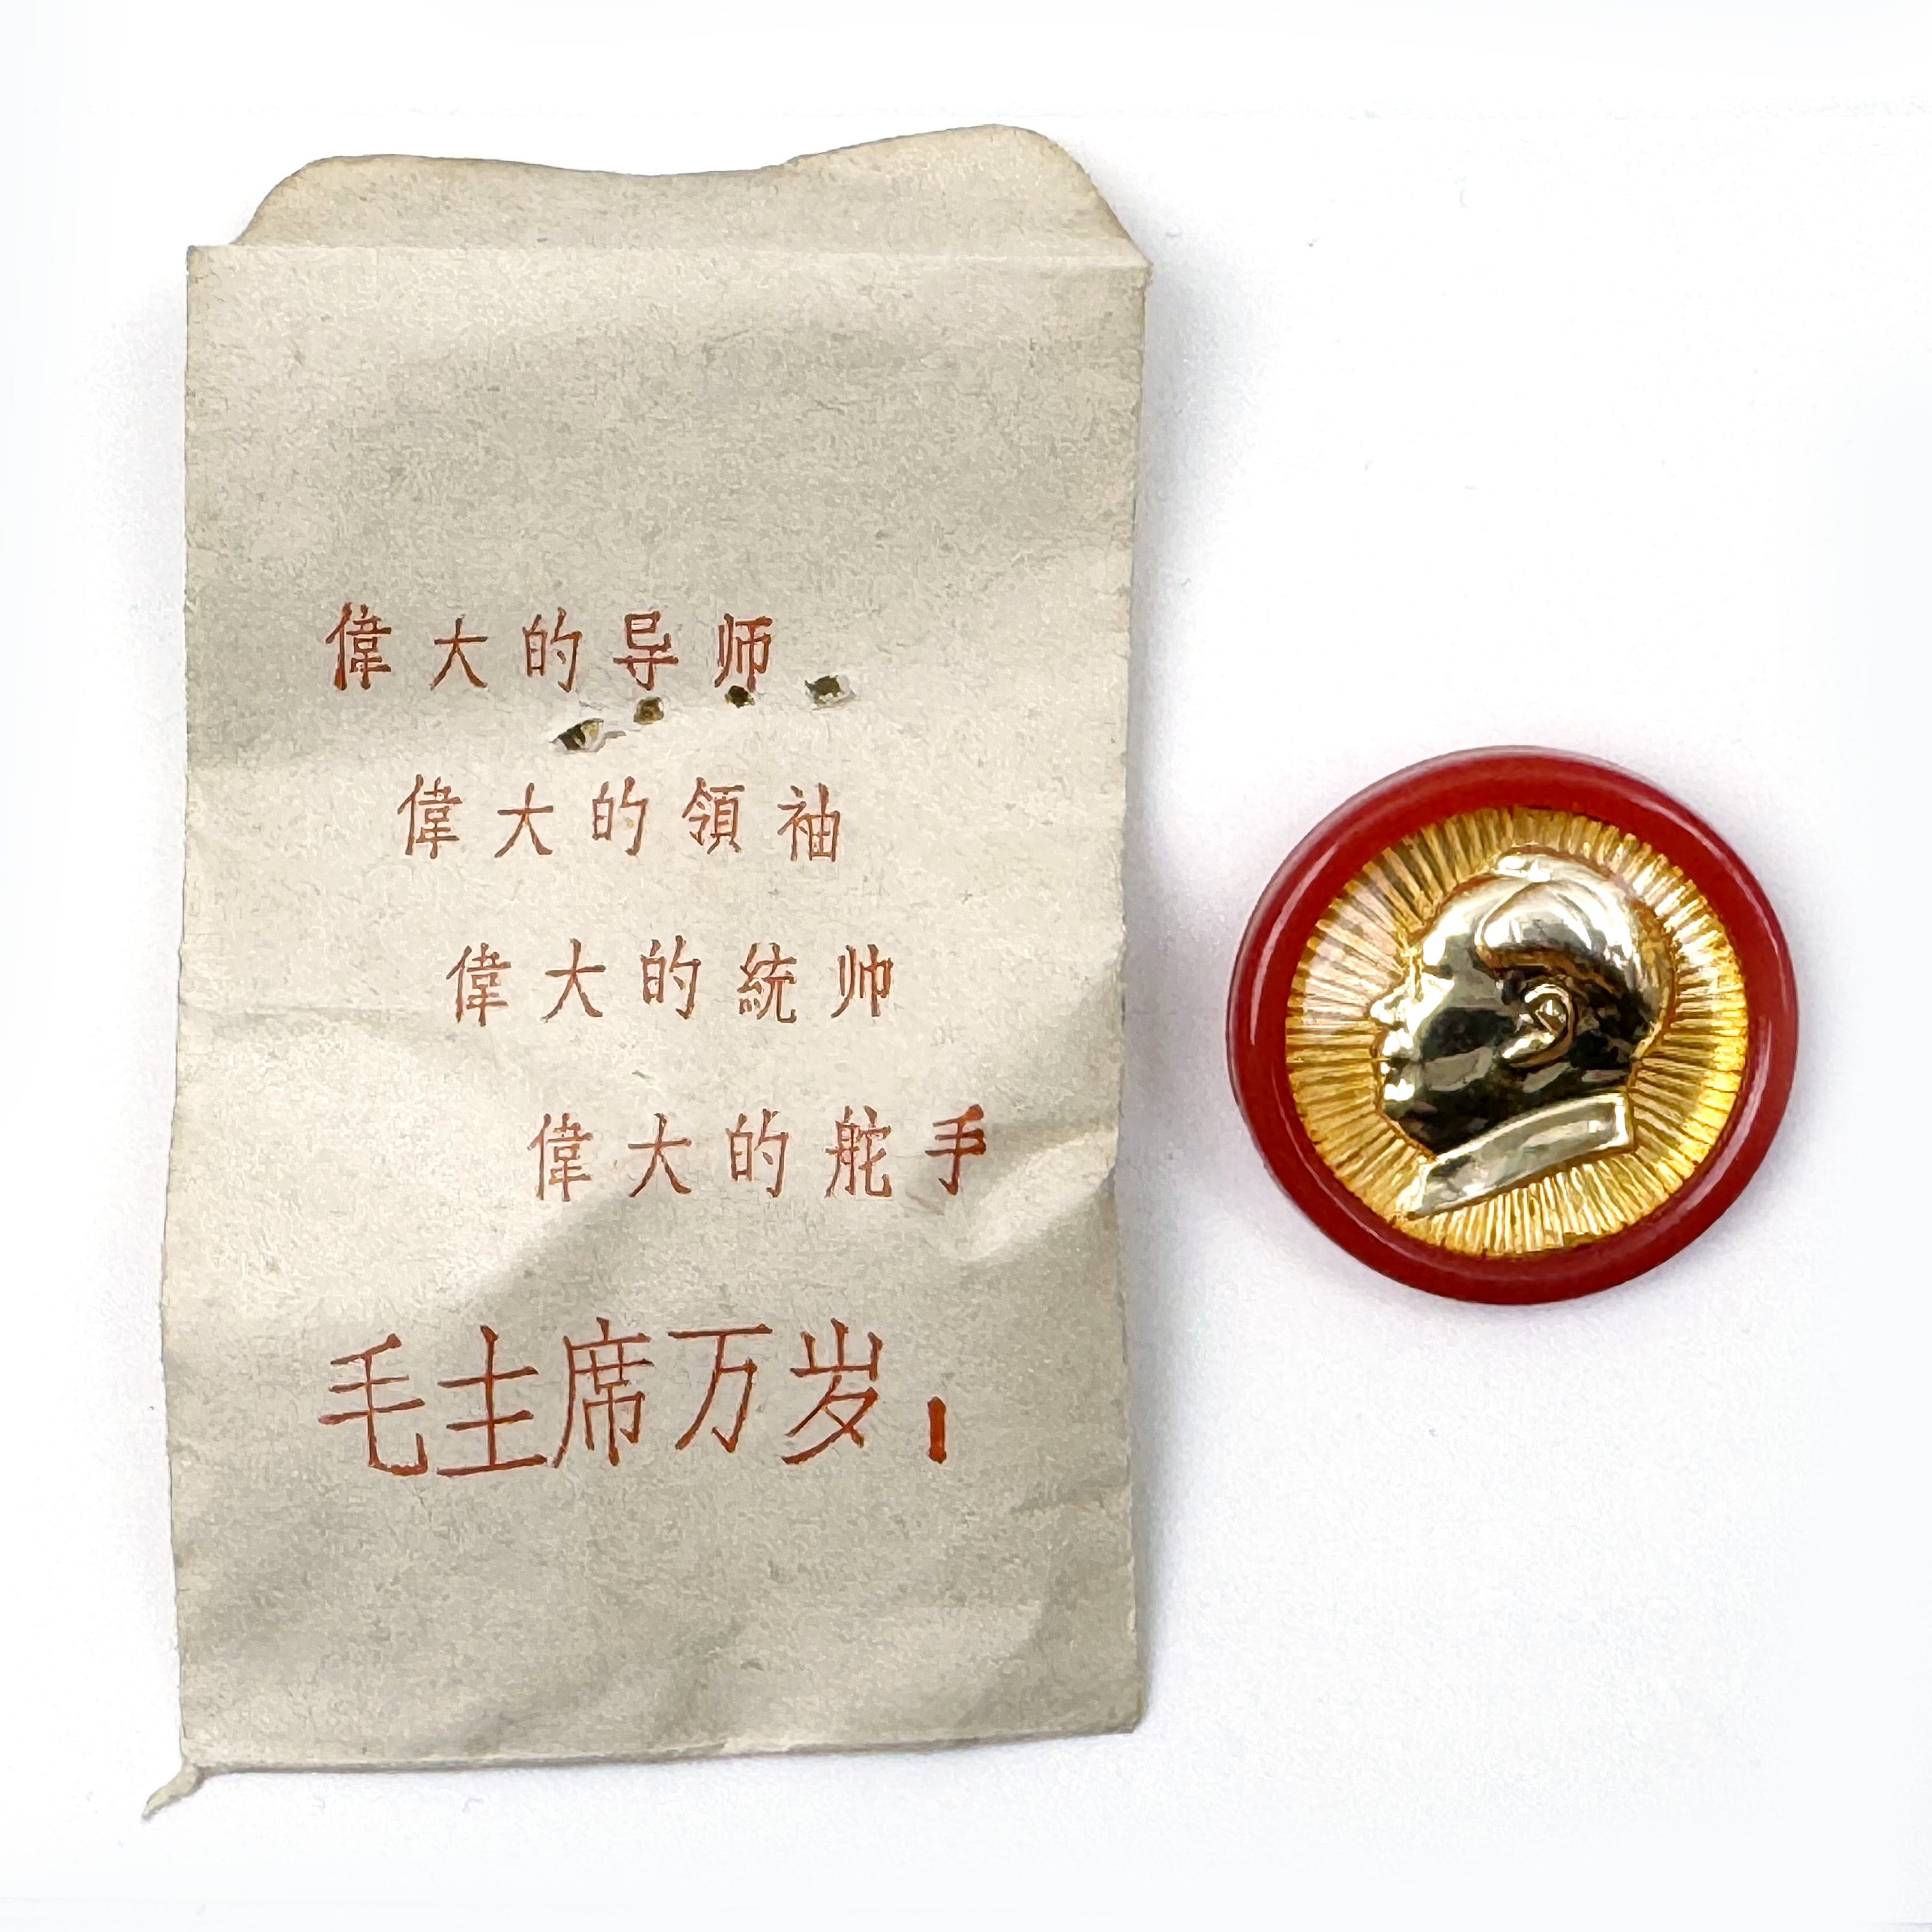 偉大的导师
偉大的領袖
偉大的統帅
偉大的舵手
毛主席万岁!